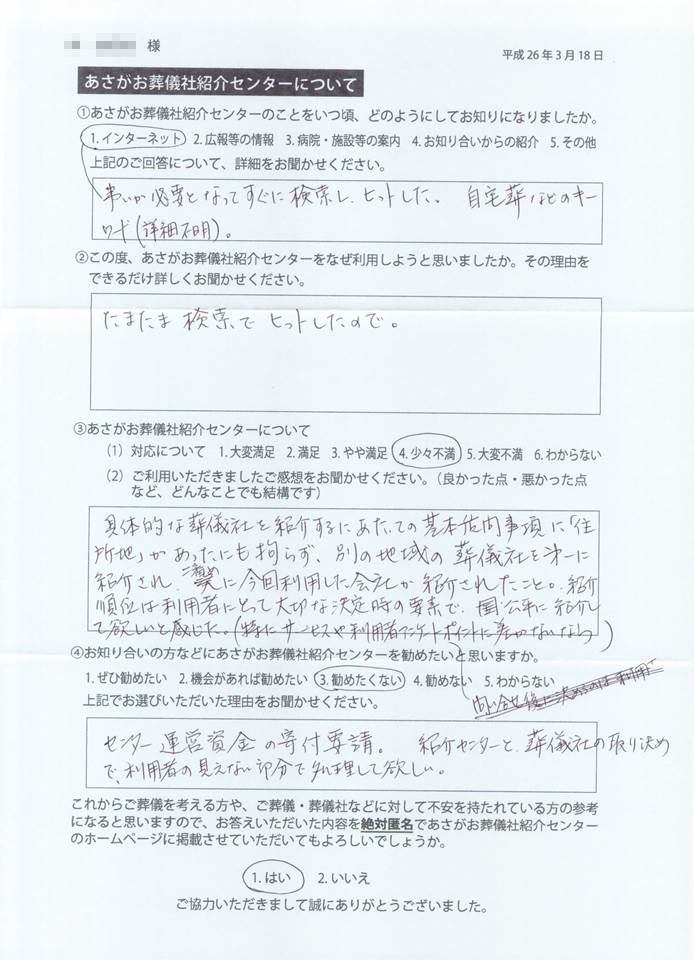 様
平成26年3月18日
あさがお葬儀社紹介センターについて
①あさがお葬儀社紹介センターのことをいつ頃、どのようにしてお知りになりましたか。
1. インターネット 2. 広報等の情報 3. 病院・施設等の案内 4. お知り合いからの紹介 5. その他
上記のご回答について、詳細をお聞かせください。
弔いが必要となってすぐに検索し、ヒットした。 自宅葬などのキー
ワード(詳細不明)。
②この度、あさがお葬儀社紹介センターをなぜ利用しようと思いましたか。その理由を
できるだけ詳しくお聞かせください。
たまたま検索でヒットしたので。
③あさがお葬儀社紹介センターについて
(1) 対応について 1. 大変満足 2. 満足 3. やや満足 4. 少々不満 5. 大変不満 6. わからない
(2) ご利用いただきましたご感想をお聞かせください。(良かった点・悪かった点
など、どんなことでも結構です)
具体的な葬儀社を紹介するにあたっての基本案内事項に「住
所地」があったにも拘らず、別の地域の葬儀社を第一に
紹介され、二番めに今回利用した会社が紹介されたこと。紹介
順位は利用者にとって大切な決定時の要素で、公平に紹介し
て欲しいと感じた。(特にサービスや利用者アンケートポイントに差がないなら)
④お知り合いの方などにあさがお葬儀社紹介センターを勧めたいと思いますか。
1. ぜひ勧めたい 2. 機会があれば勧めたい 3. 勧めたくない 4. 勧めない 5. わからない
上記でお選びいただいた理由をお聞かせください。
センター運営資金の寄付要請。 紹介センターと、葬儀社の取り決め
で、利用者の見えない部分で処理して欲しい。
これからご葬儀を考える方や、ご葬儀・葬儀社などに対して不安を持たれている方の参考
になると思いますので、お答えいただいた内容を絶対匿名であさがお葬儀社紹介センター
のホームページに掲載させていただいてもよろしいでしょうか。
1. はい 2. いいえ
ご協力いただきまして誠にありがとうございました。